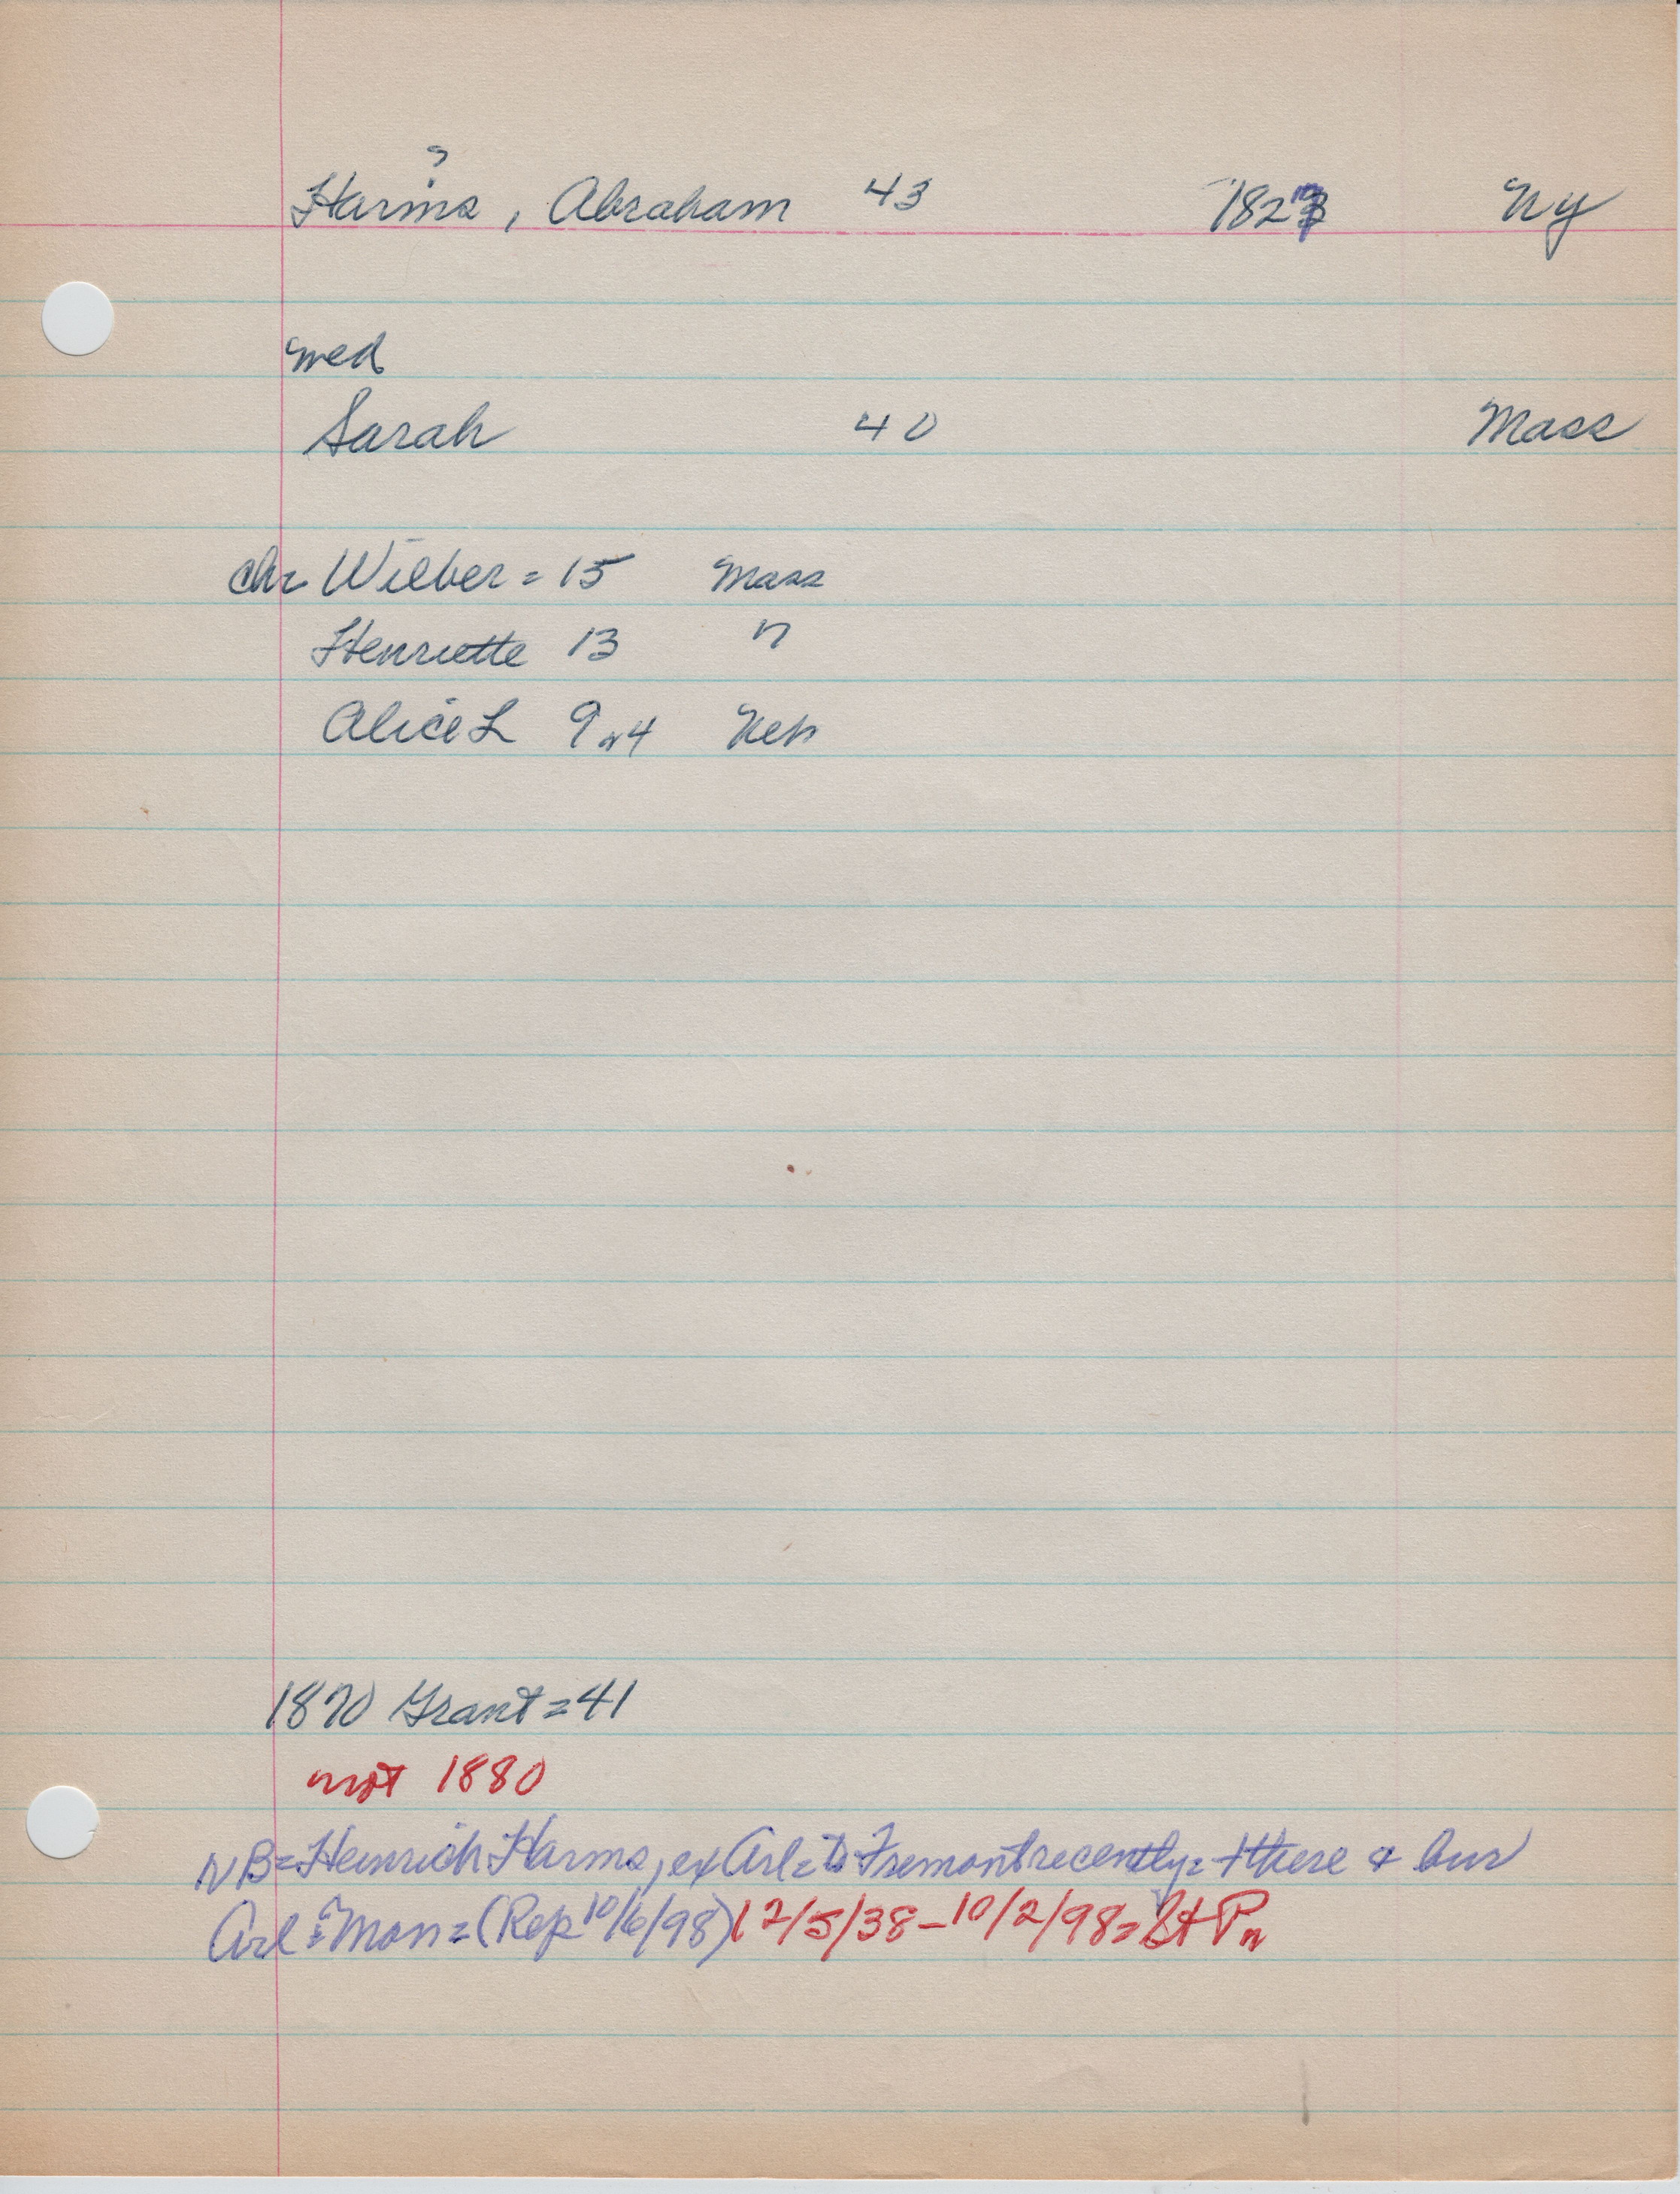 ?
Harms, Abraham 43 1827 Ny
med
Sarah 40 Mass
ch= Wilber = 15 Mass
Henriette 13 "
Alice L 9 or 4 Neb
1870 Grant = 41
not 1880
NB = Heinrich Harms, ex Arl = to Fremont recently = + there & bur
Arl = Mon = (Rep 10/6/98) 12/5/38 – 10/2/98 = St P